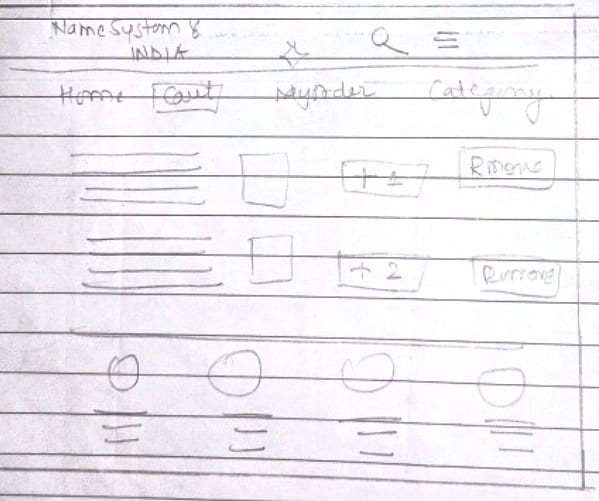 Name System &
INDIA
Home Cart Myorder Category
+ 1 Rmove
+ 2 Rmove